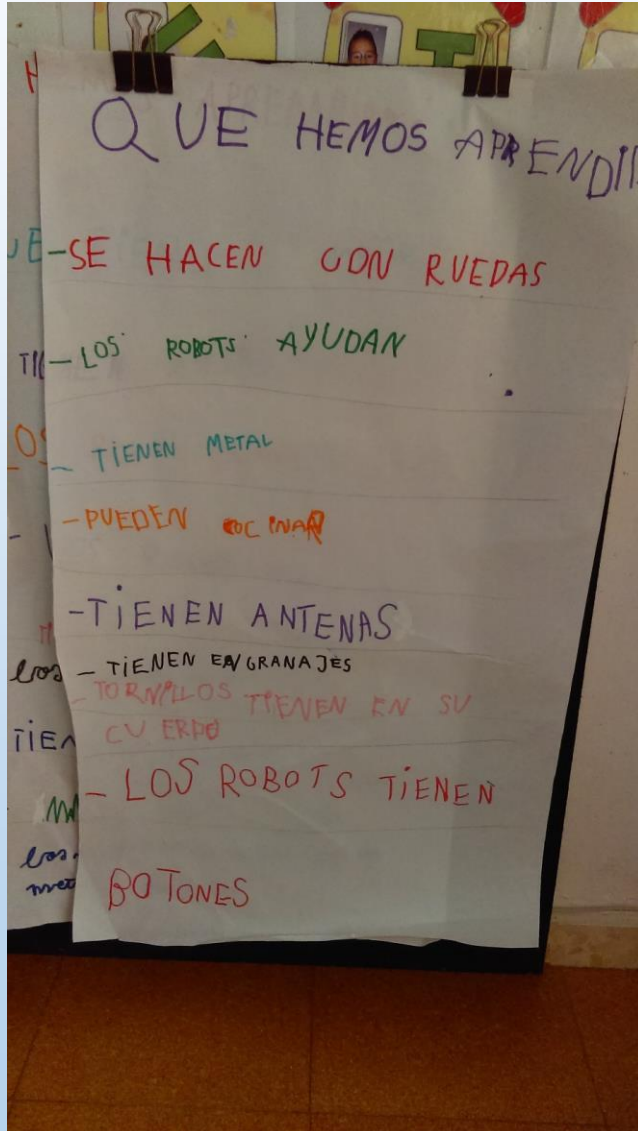 QUE HEMOS APRENDI
-SE HACEN CON RUEDAS
- LOS ROBOTS AYUDAN
- TIENEN METAL
- PUEDEN COCINAR
-TIENEN ANTENAS
- TIENEN ENGRANAJES
- TORNILLOS TIENEN EN SU
CUERPO
- LOS ROBOTS TIENEN
BOTONES